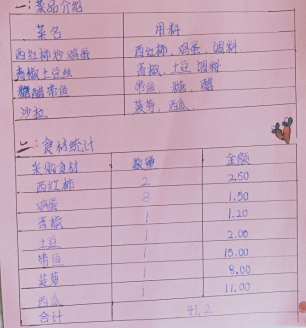 一:菜品介绍
菜名 用料
西红柿炒鸡蛋 西红柿、鸡蛋、调料
青椒土豆丝 青椒、土豆、调料
糖醋带鱼 带鱼、糖、醋
沙拉 菠萝、西瓜、
二:食材统计
采购食材 数量 金额
西红柿 2 2.50
鸡蛋 3 1.50
青椒 1 1.20
土豆 1 2.00
带鱼 1 15.00
菠萝 1 8.00
西瓜 1 11.00
合计 41.2